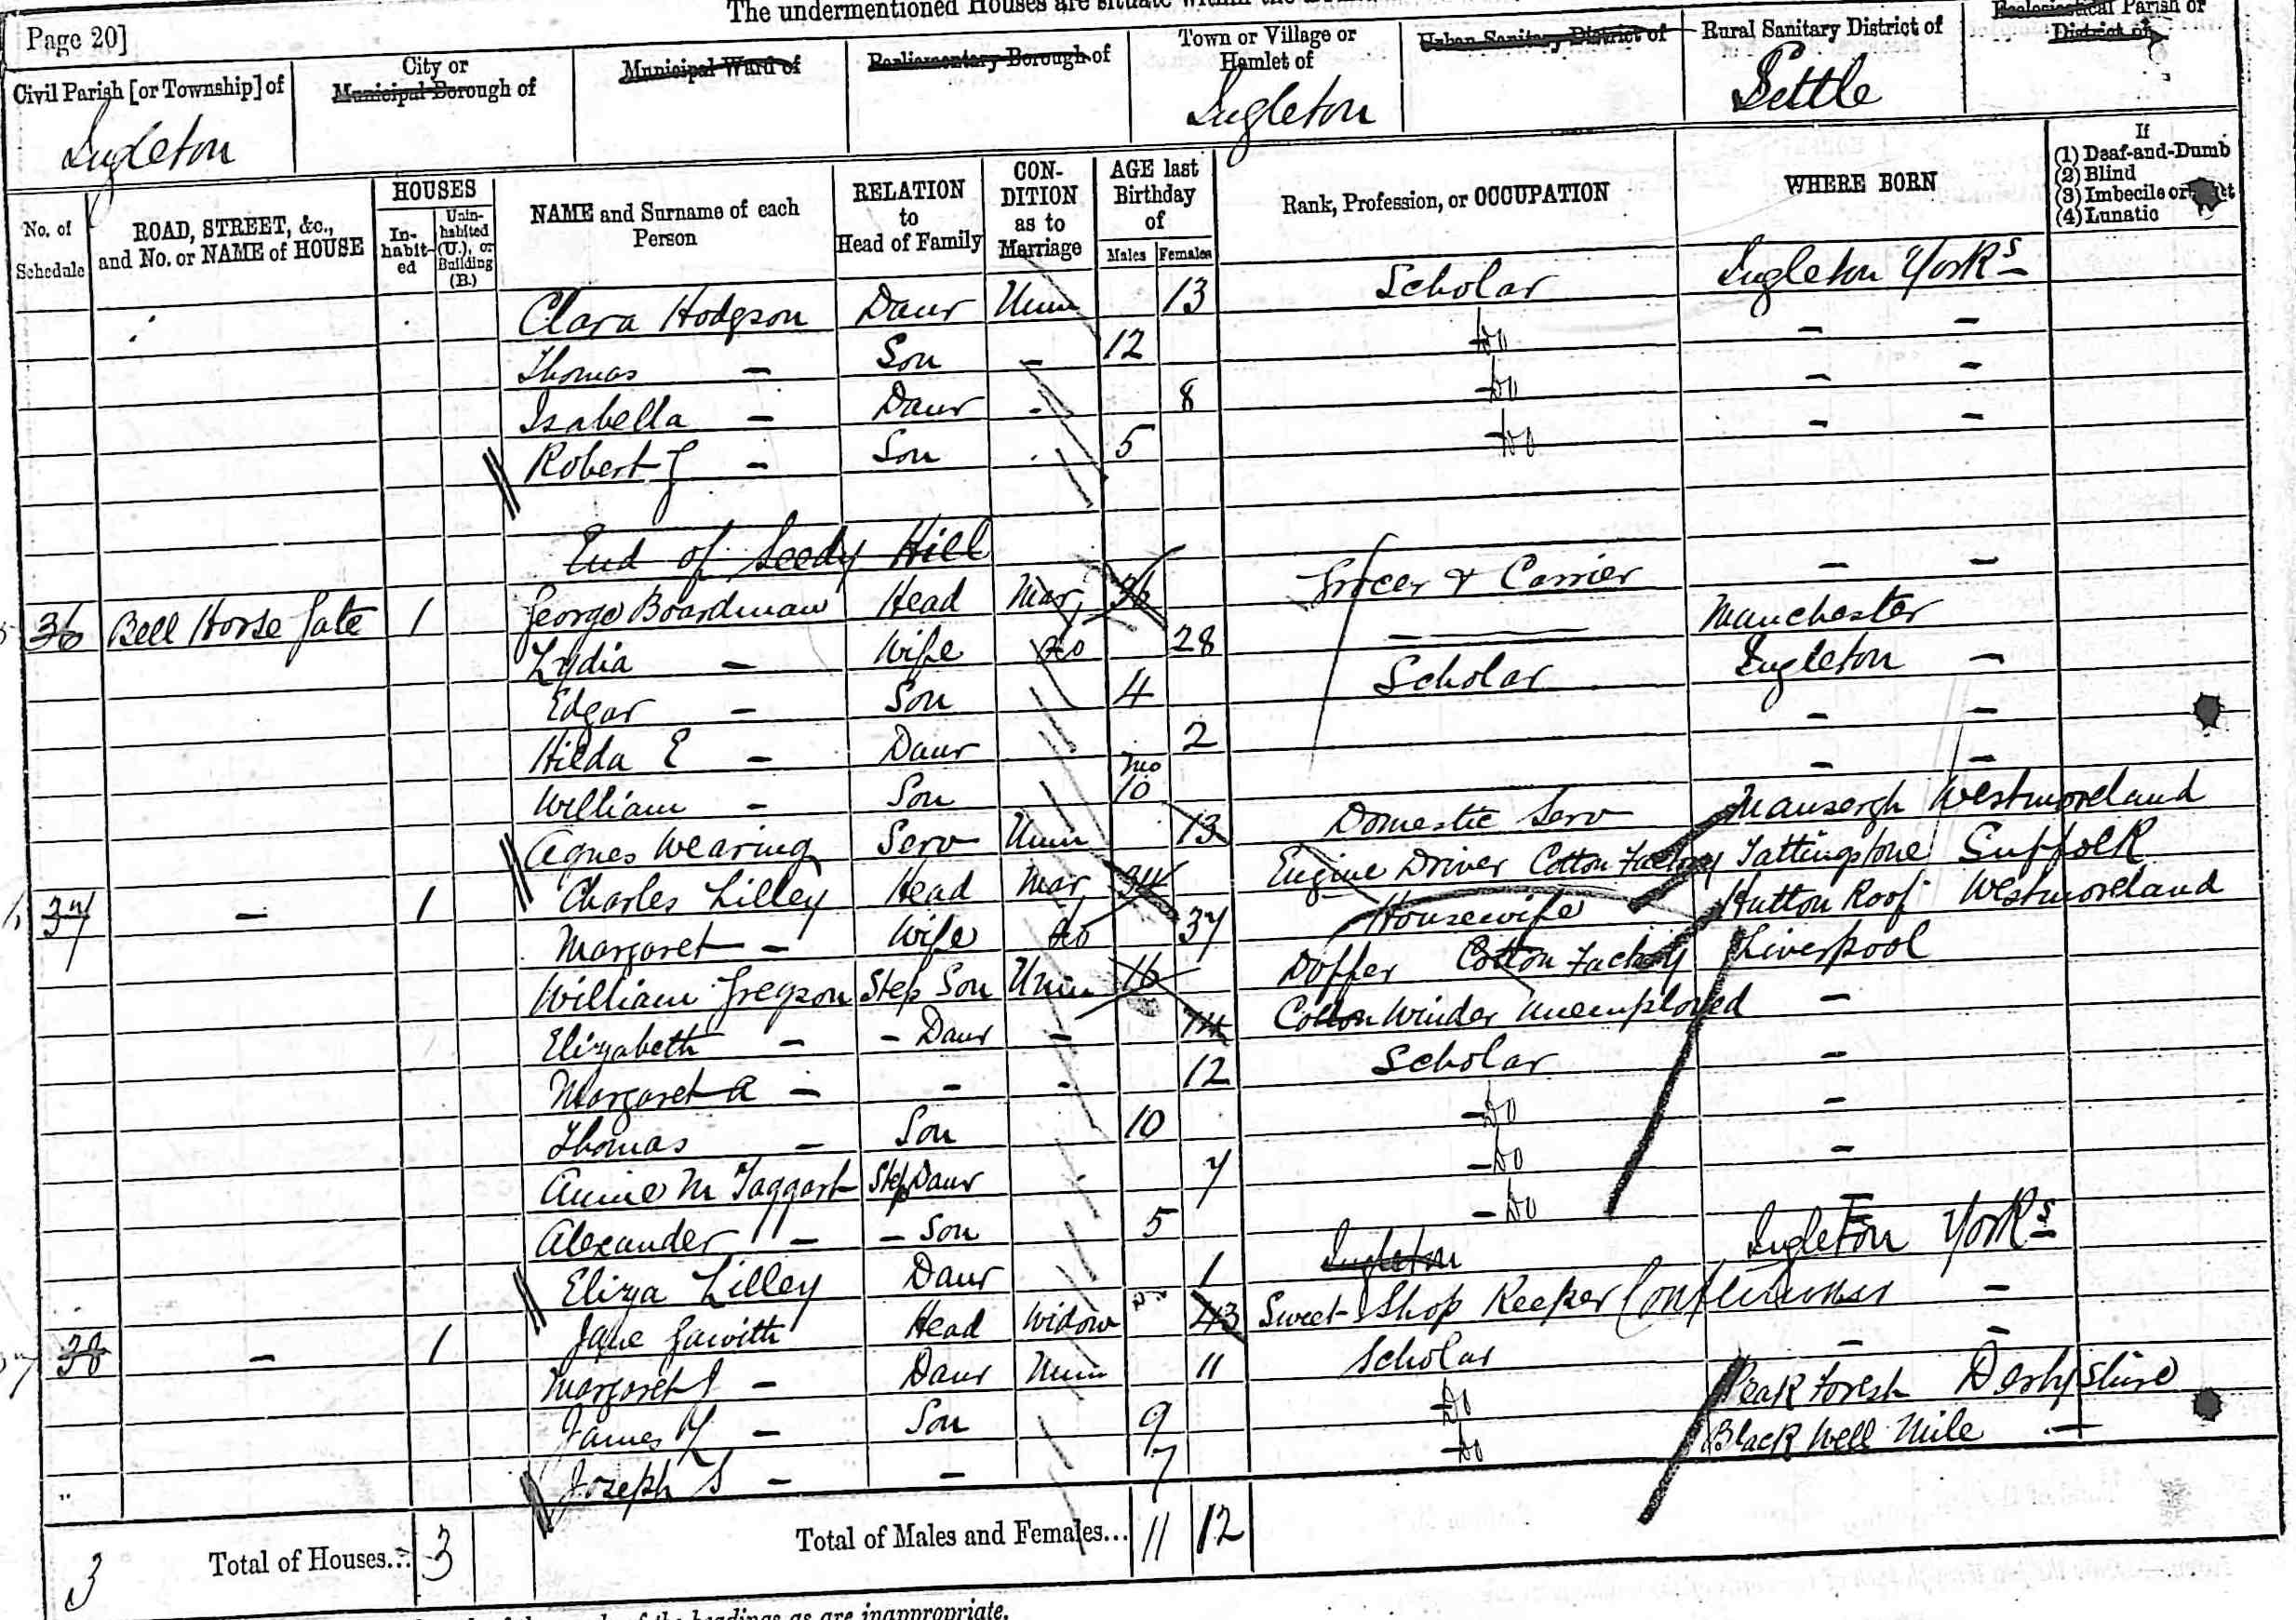 The undermentioned Houses are situate within the
Page 20]
Civil Parish [or Township] of
City or Municipal Borough of
Municipal Ward of
Parliamentary Borough of
Town or Village or Hamlet of
Urban Sanitary District of
Rural Sanitary District of
Ecclesiastical Parish or District of
Ingleton
Ingleton
Settle
No. of Schedule
ROAD, STREET, &c., and No. or NAME of HOUSE
HOUSES
In-habit-ed
Unin-habited (U.), or Building (B.)
NAME and Surname of each Person
RELATION to Head of Family
CON-DITION as to Marriage
AGE last Birthday of
Males Females
Rank, Profession, or OCCUPATION
WHERE BORN
If
(1) Deaf-and-Dumb
(2) Blind
(3) Imbecile or
(4) Lunatic
Clara Hodgson Daur Unm 13 Scholar Ingleton Yorks
Thomas — Son — 12 Do — —
Isabella — Daur - 8 Do — —
Robert J — Son 5 Do — —
End of Seedy Hill
36 Bell Horse Gate 1 George Boardman Head Mar 36 Grocer & Carrier — —
Lydia — Wife Do 28 — Manchester
Edgar — Son 4 Scholar Ingleton —
Hilda E — Daur 2 — —
William — Son 10 mo — —
Agnes Wearing Serv Unm 13 Domestic Serv Mansergh Westmoreland
37 — 1 Charles Lilley Head Mar 34 Engine Driver Cotton Factory Tattingstone Suffolk
Margaret — Wife Do 37 Housewife Hutton Roof Westmoreland
William Gregson Step Son Unm 16 Doffer Cotton Factory Liverpool
Elizabeth — — Daur — 14 Cotton Winder Unemployed —
Margaret A — — - 12 Scholar —
Thomas — Son 10 Do —
Annie M Taggart Step Daur 7 Do —
Alexander — — Son 5 Do —
Eliza Lilley Daur 1 Ingleton Ingleton Yorks
38 — 1 Jane Gawith Head Widow 43 Sweet Shop Keeper Confectioner —
Margaret J — Daur Unm 11 Scholar — —
James — Son 9 Do Peak Forest Derbyshire
Joseph S — — 7 Do Black Well Mile —
3 Total of Houses... 3 Total of Males and Females... 11 12
of the headings as are inappropriate.